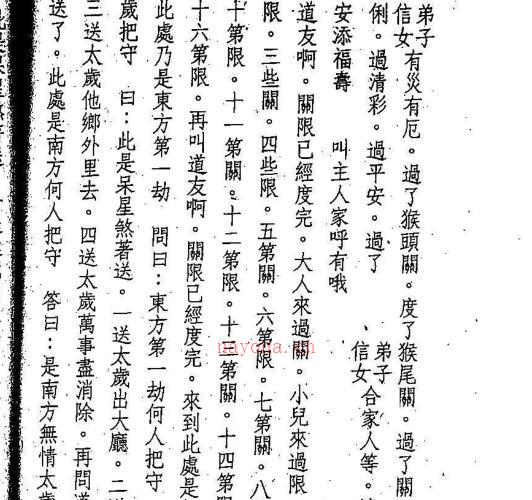 弟子信女有災有厄。過了猴頭關。度了猴尾關。過了關
俐。過清彩。過平安。過了 弟子信女合家人等。
安添福壽 叫主人家呼有哦
道友啊。關限已經度完。大人來過關。小兒來過限
限。三些關。四些限。五第關。六第限。七第關。八
十第限。十一第關。十二第限。十 第關。十四第
十六第限。再叫道友啊。關限已經度完。來到此處是
此處乃是東方第一劫 問曰：東方第一劫何人把守
歲把守 曰：此是呆星煞著送。一送太歲出大廳。二
三送太歲他鄉外里去。四送太歲萬事盡消除。再問道
送了。此處是南方何人把守 答曰：是南方無情太歲